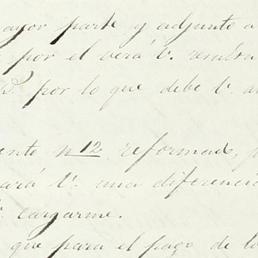 ayor parte y adjunto a
por el verá V.
por lo que debe V.
ento nº 12 reformado,
ará V. una diferenci
cargarme.
que para el pago de lo